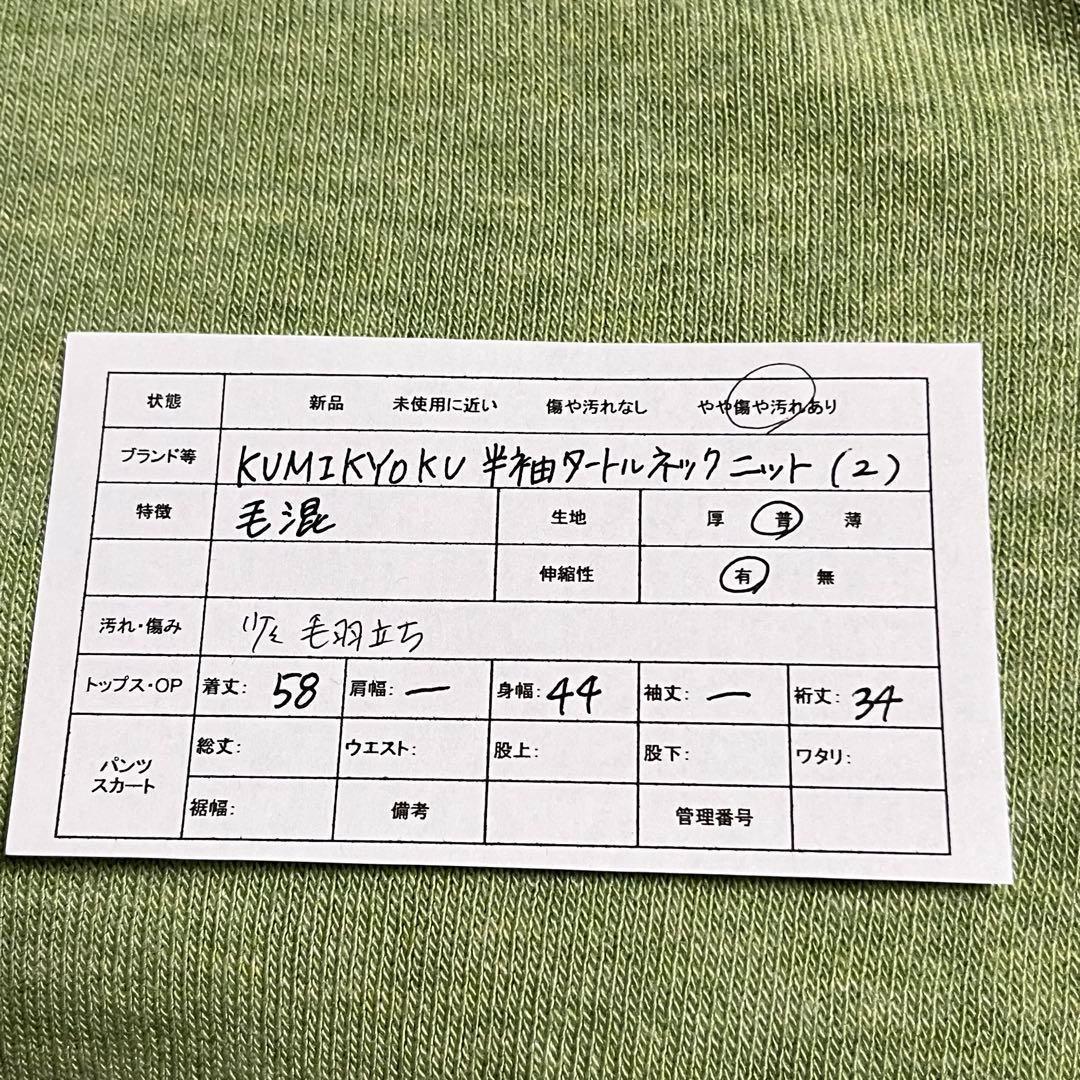 状態 新品 未使用に近い 傷や汚れなし やや傷や汚れあり
ブランド等 KUMIKYOKU 半袖タートルネックニット(2)
特徴 毛混 生地 厚 普 薄
伸縮性 有 無
汚れ・傷み 毛羽立ち
トップス・OP 着丈: 58 肩幅: ー 身幅: 44 袖丈: ー 裄丈: 34
パンツ
スカート
総丈: ウエスト: 股上: 股下: ワタリ:
裾幅: 備考 管理番号